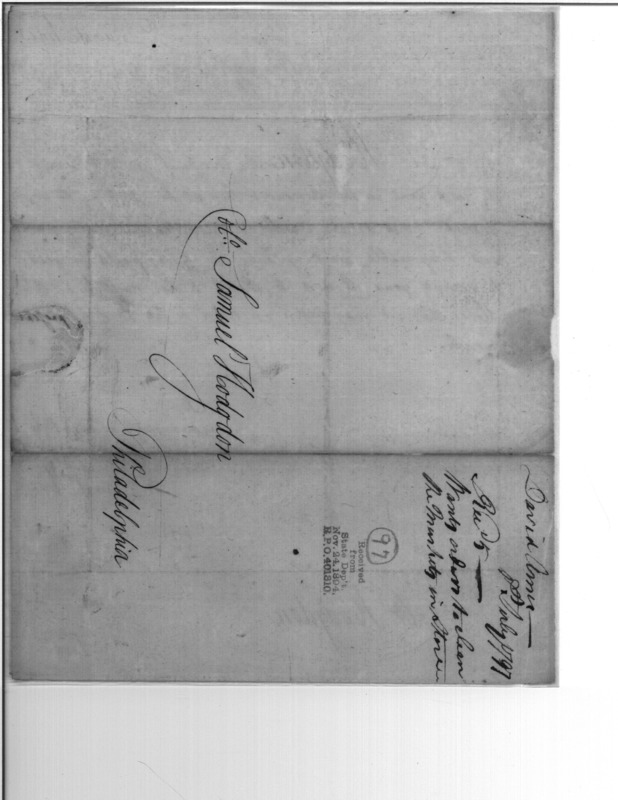 Col:: Samuel Hodgdon
Philadelphia
David Ames
July 1797
Wants orders to clean
the Muskets in Store
97
Received
from
State Dep't,
Nov. 24, 1804,
R.P.O. 401310.